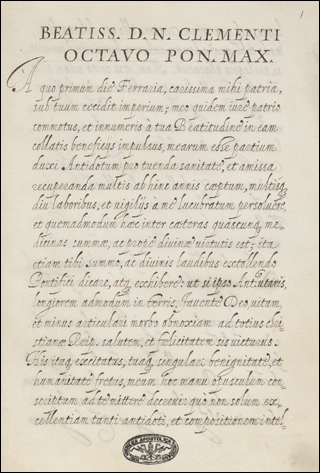 1
BEATISS. D. N. CLEMENTI
OCTAVO PON. MAX.
A quo primum die Ferraria, carissima mihi patria,
sub tuum cecidit imperium; meo quidem iure patrio
commotus, et innumeris à tua Beatitudine in eam
collatis beneficijs impulsus, mearum esse partium
duxi Antidotum pro tuenda sanitate, et amissa
recuperanda multis ab hinc annis cœptum, multisq,
diu laboribus, et vigilijs a me lucubratum persoluere,
et quemadmodum hæc inter cæteras quascunq, me,
dicinas summæ, ac propè diuinæ virtutis est; ita
etiam tibi summo, ac diuinis laudibus extollendo
Pontifici dicare, atq, exhibere: ut si ipso Antiutaris,
longiorem admodum in terris, fauente Deo, vitam,
et minus articulari morbo obnoxiam ad totius chri
stianæ Reip. salutem, et fœlicitatem sis victurus.
His itaq, excitatus, tuaq, singulari benignitate, et
humanitate fretus, meum hoc manu opusculum con,
scriptum ad te mittere decreui: quò non solum ex,
cellentiam tanti antidoti, et compositionem intel,